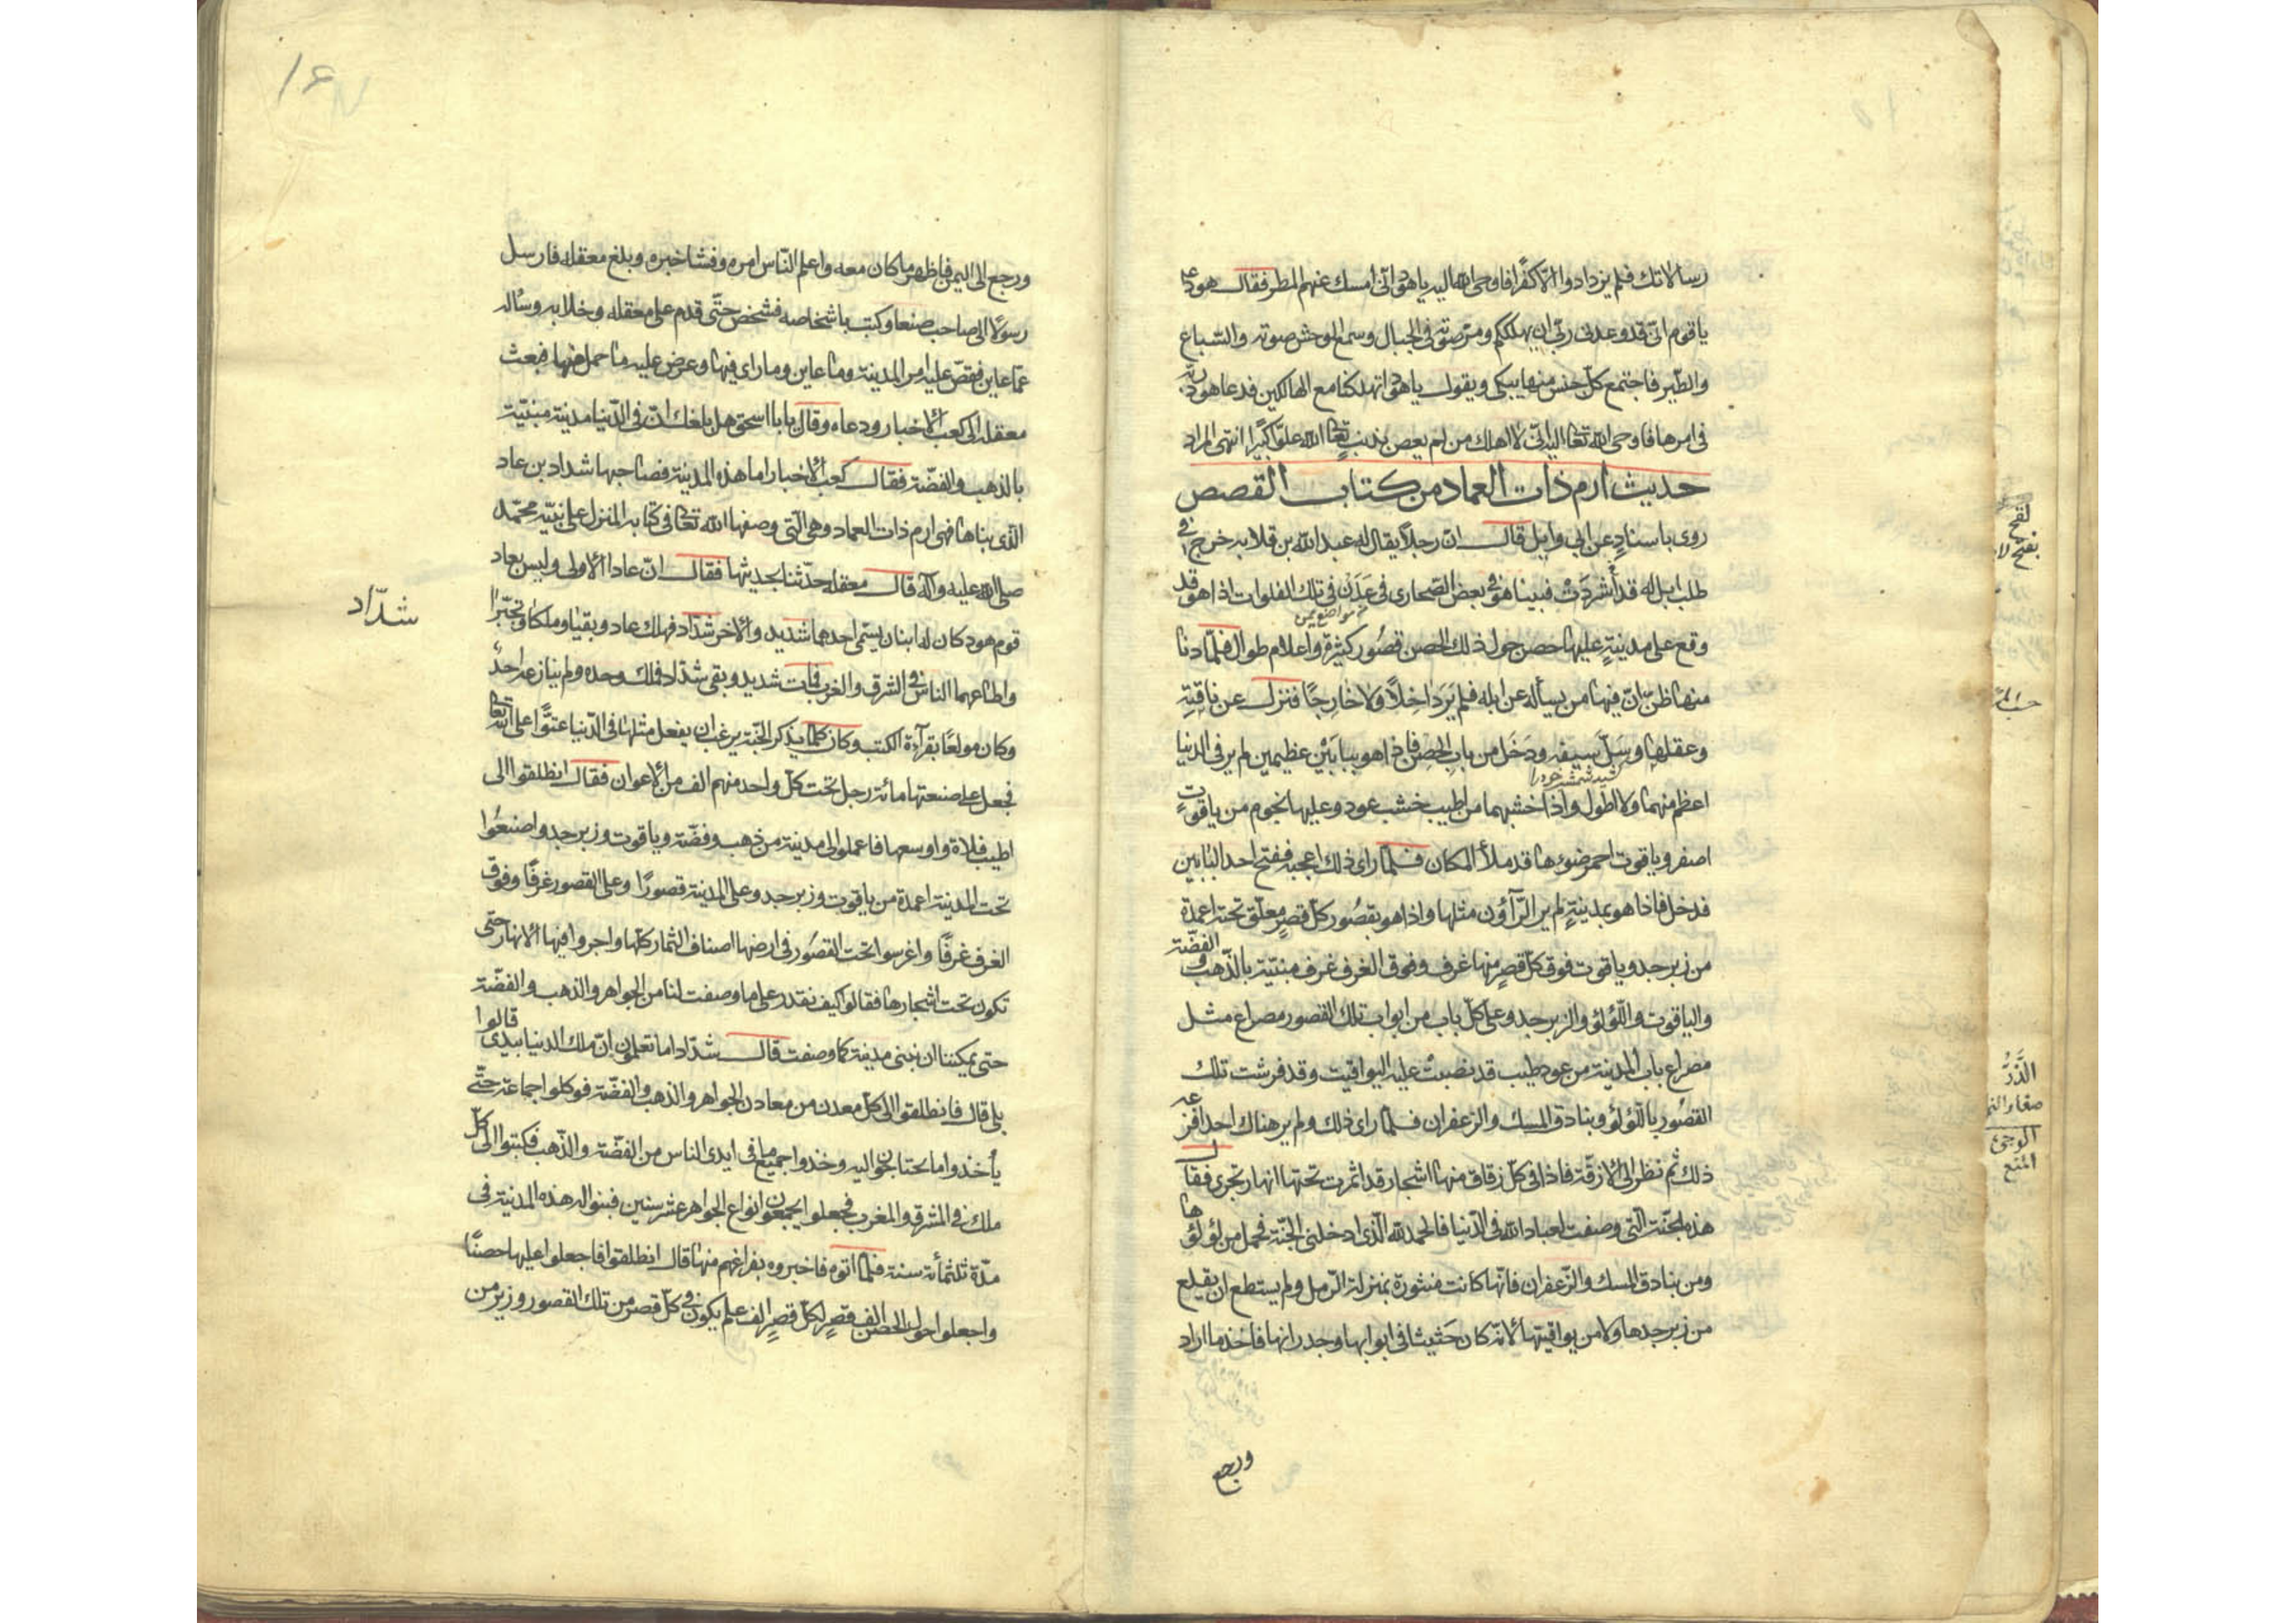 رسالاتك فلم يزدادوا الا كفرا فاوحى الله اليه يا هود انى امسك عنهم المطر فقال هود ع
يا قوم انى قد وعدنى ربى ان يهلككم ومر صوته فى الجبال وسمع الوحش صوته والسباع
والطير فاجتمع كل جنس منها يبكى ويقول يا هود اتهلكنا مع الهالكين فدعا هود ربه
فى امرها فاوحى الله تعا اليه انى لا اهلك من لم يعص بذنب تعا الله علوا كبيرا انتهى المراد
حديث ارم ذات العماد من كتاب القصص
روى باسناد عن ابى وايل قال ان رجلا يقال له عبد الله بن قلابه خرج فى
طلب ابل له قد شردت فبينا هو فى بعض الصحارى فى عدن فى تلك الفلوات اذا هو قد
وقع على مدينة عليها حصن حول ذلك الحصن قصور كثيرة واعلام طوال فلما دنا
منها ظن ان فيها من يسأله عن ابله فلم ير داخلا ولا خارجا فنزل عن ناقته
وعقلها وسل سيفه ودخل من باب الحصن فاذا هو ببابين عظيمين لم ير فى الدنيا
اعظم منهما ولا اطول واذا خشبهما من اطيب خشب عود وعليها نجوم من ياقوت
اصفر وياقوت احمر ضوءها قد ملأ المكان فلما راى ذلك اعجبه ففتح احد البابين
فدخل فاذا هو بمدينة لم ير الرآؤن مثلها واذا هو بقصور كل قصر معلق تحته اعمدة
من زبرجد وياقوت فوق كل قصر منها غرف وفوق الغرف غرف مبنية بالذهب والفضة
والياقوت واللؤلؤ والزبرجد وعلى كل باب من ابواب تلك القصور مصراع مثل
مصراع باب المدينة من عود طيب قد نضبت عليه اليواقيت وقد فرشت تلك
القصور باللؤلؤ وبنادق المسك والزعفران فلما راى ذلك ولم ير هناك احدا افزعه
ذلك ثم نظر الى الازقة فاذا فى كل زقاق منها اشجار قد اثمرت تحتها انهار تجرى فقال
هذه الجنة التى وصفت لعباد الله فى الدنيا فالحمد لله الذى ادخلنى الجنة فحمل من لؤلؤها
ومن بنادق المسك والزعفران فانها كانت منثورة بمنزلة الرمل ولم يستطع ان يقلع
من زبرجدها ولا من يواقيتها لانه كان حثيثا فى ابوابها وجدرانها فاخذ ما اراد
ورجع
الذر
صغار النمل
ورجع الى اليمن فاظهر ما كان معه واعلم الناس امره وفشا خبره وبلغ معقله فارسل
رسولا الى صاحب صنعا وكتب باشخاصه فشخص حتى قدم على معقله وخلا به وساله
عما عاين فقص عليه امر المدينة وما عاين وما راى فيها وعرض عليه ما حمل منها فبعث
معقله الى كعب الاخبار ودعاه وقال يا با اسحق هل بلغك ان فى الدنيا مدينة مبنية
بالذهب والفضة فقال كعب الاخبار اما هذه المدينة فصاحبها شداد بن عاد
الذى بناها فهى ارم ذات العماد وهى التى وصفها الله تعا فى كتابه المنزل على نبيه محمد
صلى الله عليه وآله قال معقله حدثنا بحديثها فقال ان عادا الاولى وليس بعاد
قوم هود كان له ابنان يسمى احدهما شديد والاخر شداد فهلك عاد وبقيا وملكا وتجبرا
شداد
واطاعهما الناس فى الشرق والغرب فمات شديد وبقى شداد فملك وحده ولم ينازعه احد
وكان مولعا بقرآءة الكتب وكان كلما يذكر الجنة يرغب ان يفعل مثلها فى الدنيا عتوا على الله تعا
فجعل على صنعتها مائة رجل تحت كل واحد منهم الف من الاعوان فقال انطلقوا الى
اطيب فلاة واوسعها فاعملوا لى مدينة من ذهب وفضة وياقوت وزبرجد واصنعوا
تحت المدينة اعمدة من ياقوت وزبرجد وعلى المدينة قصورا وعلى القصور غرفا وفوق
الغرف غرفا واغرسوا تحت القصور فى ارضها اصناف الثمار كلها واجروا فيها الانهار حتى
تكون تحت اشجارها فقالوا كيف نقدر على ما وصفت لنا من الجواهر والذهب والفضة
حتى يمكننا ان نبنى مدينة كما وصفت قال شداد اما تعلمون ان ملك الدنيا بيدى قالوا
بلى قال فانطلقوا الى كل معدن من معادن الجواهر والذهب والفضة فوكلوا جماعة حتى
يأخذوا ما تحتاجون اليه وخذوا جميع ما فى ايدى الناس من الفضة والذهب فكتبوا الى كل
ملك فى المشرق والمغرب فجعلوا يجمعون انواع الجواهر عشر سنين فبنوا له هذه المدينة فى
مدة ثلثمائة سنة فلما اتوه فاخبروه بفراغهم منها قال انطلقوا فاجعلوا عليها حصنا
واجعلوا حول الحصن الف قصر لكل قصر الف علم يكون فى كل قصر من تلك القصور وزير من